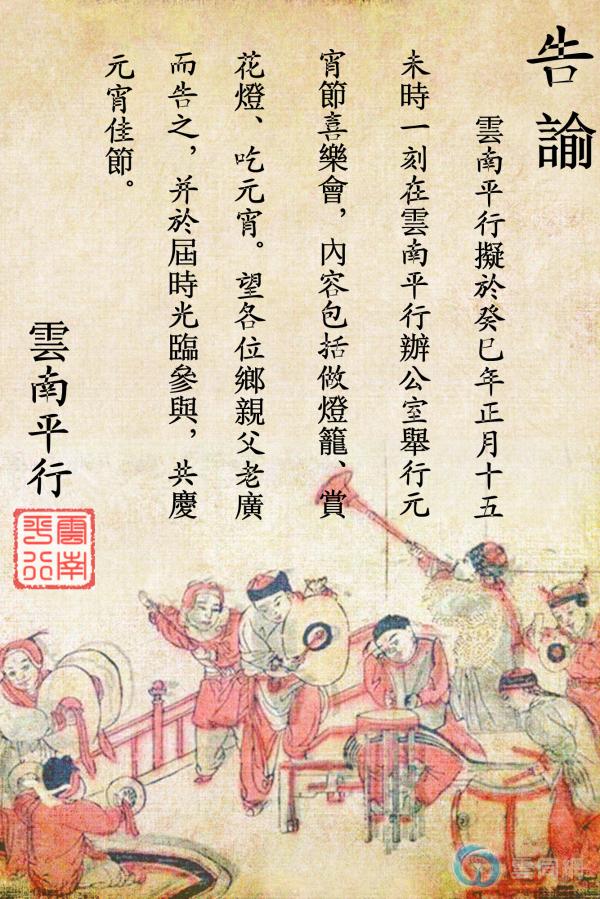 告諭
雲南平行擬於癸巳年正月十五
未時一刻在雲南平行辦公室舉行元
宵節喜樂會，內容包括做燈籠、賞
花燈、吃元宵。望各位鄉親父老廣
而告之，并於屆時光臨參與，共慶
元宵佳節。
雲南平行
雲南平行
雲同網